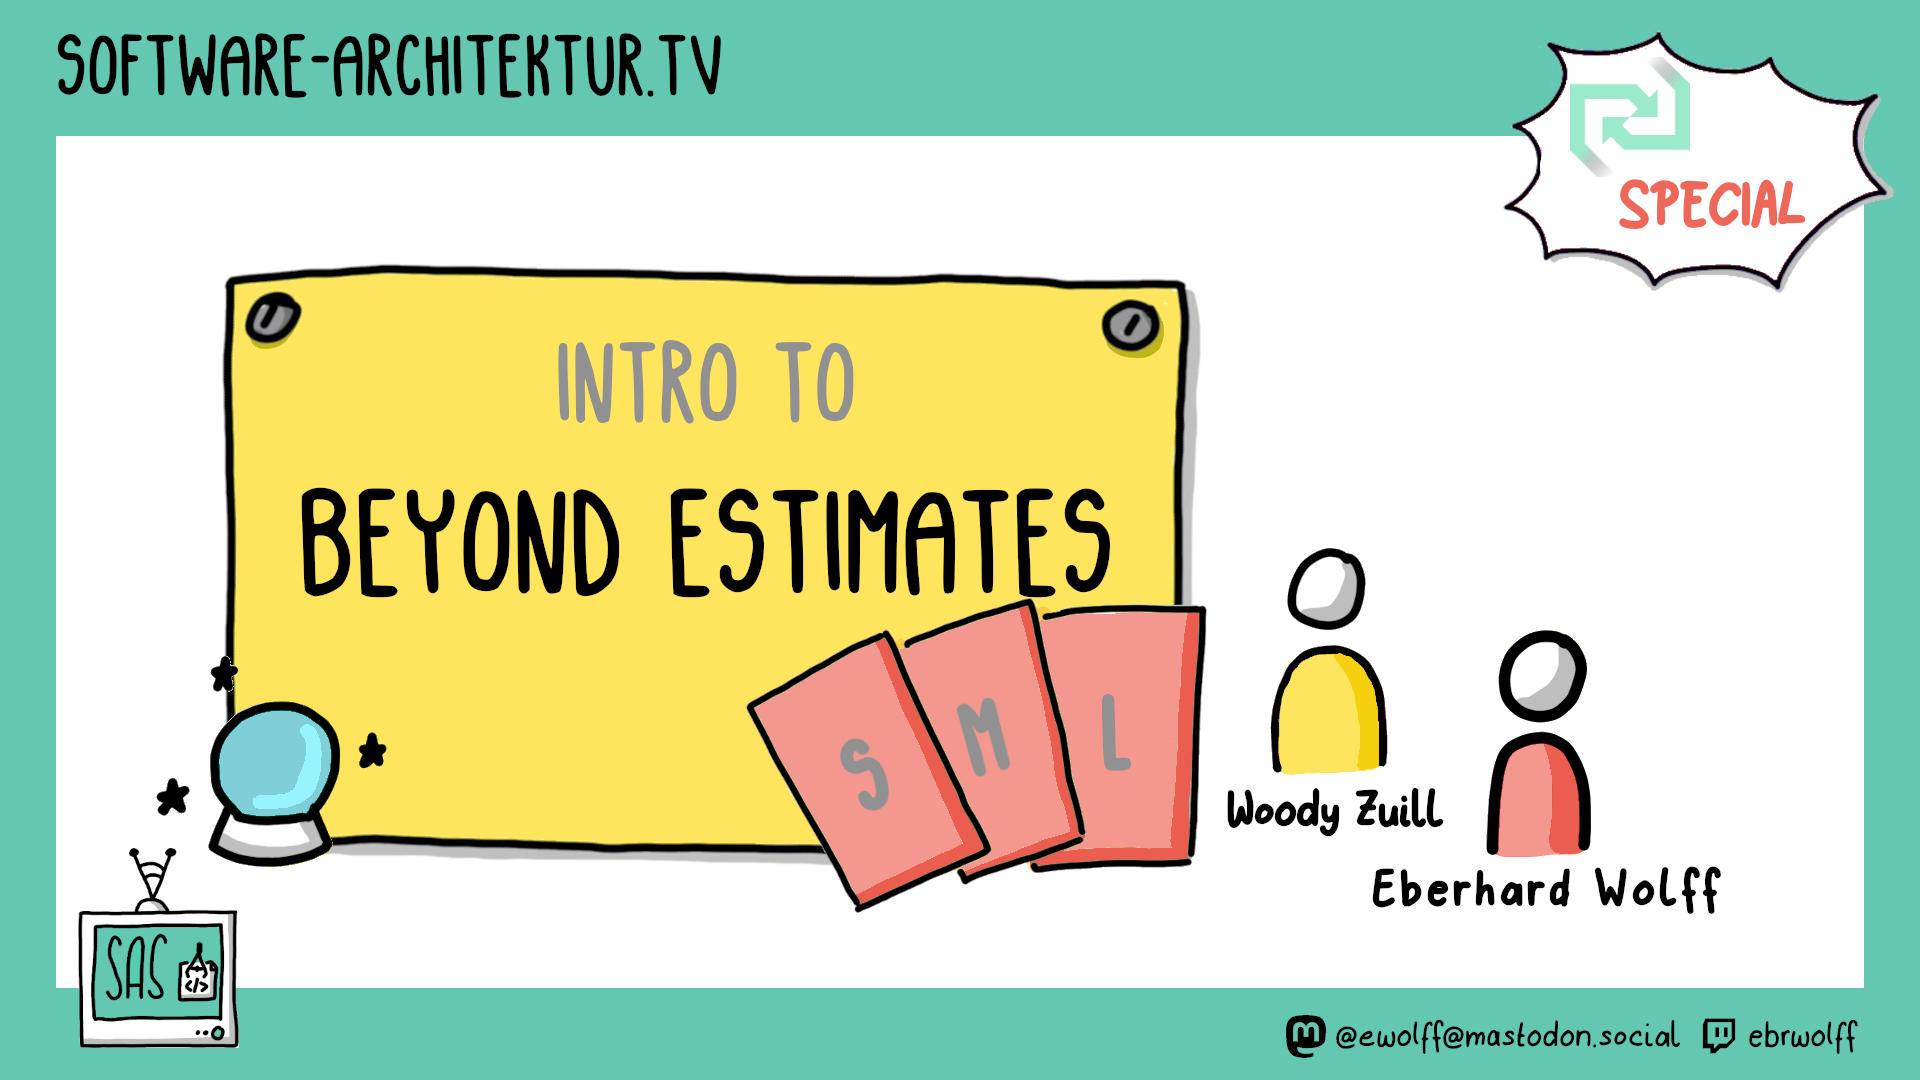 SOFTWARE-ARCHITEKTUR.TV
SPECIAL
INTRO TO
BEYOND ESTIMATES
S
M
L
Woody Zuill
Eberhard Wolff
SAS
</>
@ewolff@mastodon.social
ebrwolff